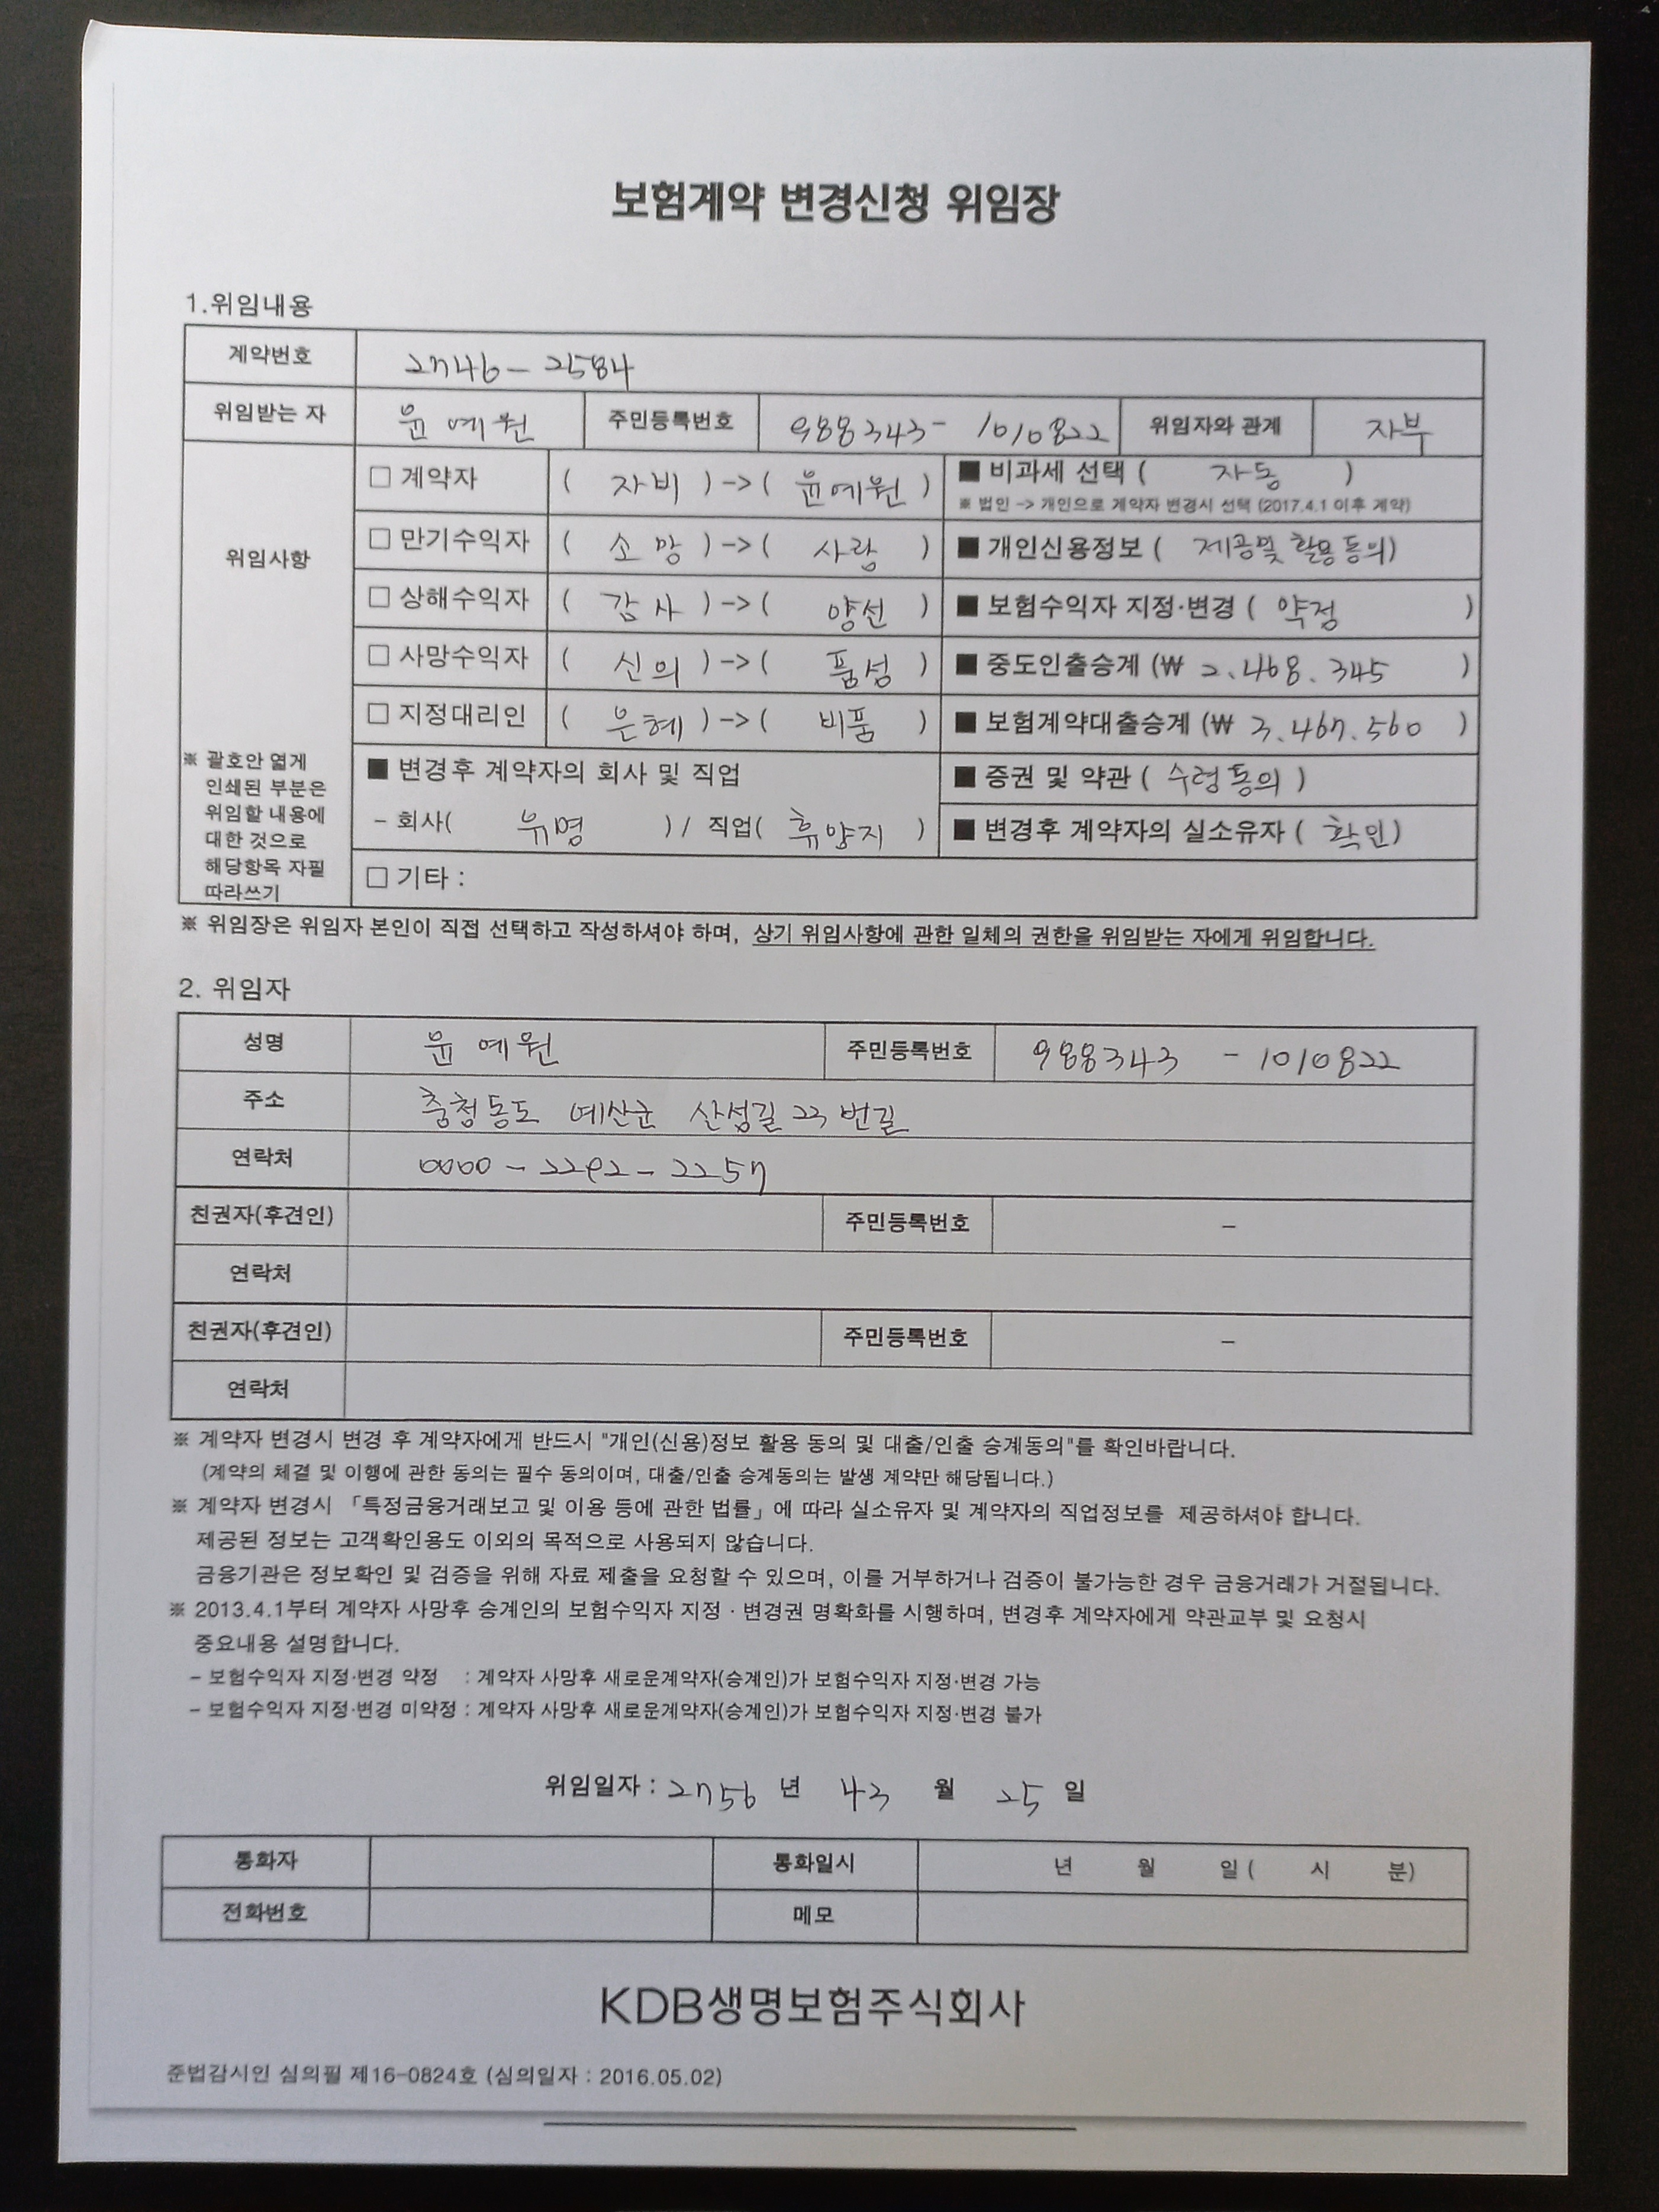 보험계약 변경신청 위임장
1.위임내용
계약번호 2746-2584
위임받는 자 윤예원 주민등록번호 988343- 1010822 위임자와 관계 자부
□ 계약자 ( 자비 ) -> ( 윤예원 ) ■ 비과세 선택 ( 자동 )
※ 법인 -> 개인으로 계약자 변경시 선택 (2017.4.1 이후 계약)
위임사항 □ 만기수익자 ( 소망 ) -> ( 사랑 ) ■ 개인신용정보 ( 제공및 활용동의)
□ 상해수익자 ( 감사 ) -> ( 양선 ) ■ 보험수익자 지정·변경 ( 약정 )
□ 사망수익자 ( 신의 ) -> ( 품성 ) ■ 중도인출승계 (₩ 2.468.345 )
□ 지정대리인 ( 은혜 ) -> ( 비품 ) ■ 보험계약대출승계 (₩ 3.467.560 )
※ 괄호안 엷게
인쇄된 부분은
위임할 내용에
대한 것으로
해당항목 자필
따라쓰기
■ 변경후 계약자의 회사 및 직업 ■ 증권 및 약관 ( 수령동의 )
- 회사( 유명 ) / 직업( 휴양지 ) ■ 변경후 계약자의 실소유자 ( 확인)
□ 기타 :
※ 위임장은 위임자 본인이 직접 선택하고 작성하셔야 하며, 상기 위임사항에 관한 일체의 권한을 위임받는 자에게 위임합니다.
2. 위임자
성명 윤예원 주민등록번호 988343 - 1010822
주소 충청동도 예산군 산성길 23 번길
연락처 0000-2292-2257
친권자(후견인) 주민등록번호 -
연락처
친권자(후견인) 주민등록번호 -
연락처
※ 계약자 변경시 변경 후 계약자에게 반드시 "개인(신용)정보 활용 동의 및 대출/인출 승계동의"를 확인바랍니다.
(계약의 체결 및 이행에 관한 동의는 필수 동의이며, 대출/인출 승계동의는 발생 계약만 해당됩니다.)
※ 계약자 변경시 「특정금융거래보고 및 이용 등에 관한 법률」에 따라 실소유자 및 계약자의 직업정보를 제공하셔야 합니다.
제공된 정보는 고객확인용도 이외의 목적으로 사용되지 않습니다.
금융기관은 정보확인 및 검증을 위해 자료 제출을 요청할 수 있으며, 이를 거부하거나 검증이 불가능한 경우 금융거래가 거절됩니다.
※ 2013.4.1부터 계약자 사망후 승계인의 보험수익자 지정 · 변경권 명확화를 시행하며, 변경후 계약자에게 약관교부 및 요청시
중요내용 설명합니다.
- 보험수익자 지정·변경 약정 : 계약자 사망후 새로운계약자(승계인)가 보험수익자 지정·변경 가능
- 보험수익자 지정·변경 미약정 : 계약자 사망후 새로운계약자(승계인)가 보험수익자 지정·변경 불가
위임일자 : 2756 년 43 월 25 일
통화자 통화일시 년 월 일 ( 시 분)
전화번호 메모
KDB생명보험주식회사
준법감시인 심의필 제16-0824호 (심의일자 : 2016.05.02)